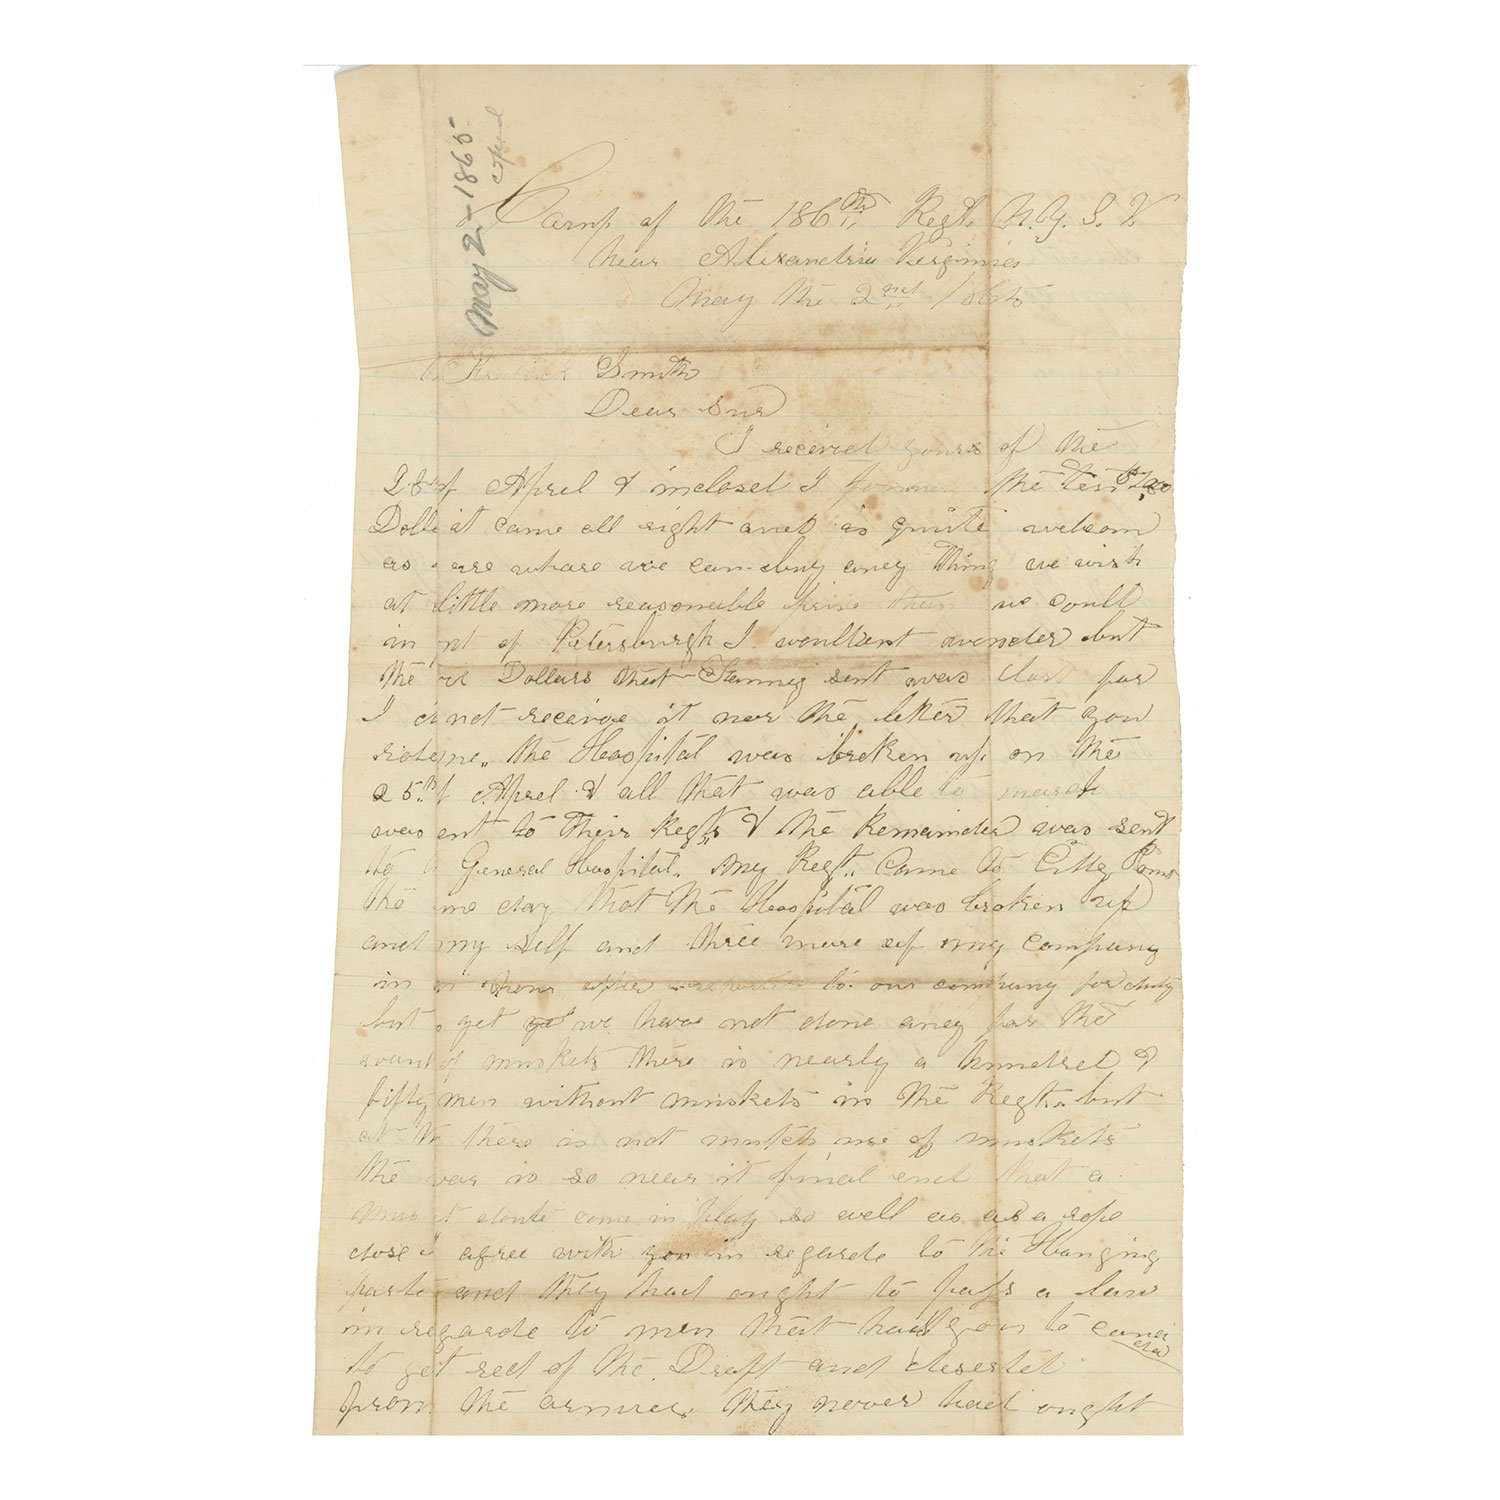 May 2 - 1865
copied
Camp of the 186th Regt. N.Y.S.V.
near Alexandria Virginia
May the 2nd 1865
Smith
Dear Sur
I receivd yours of the
28 of Aprel & inclosed I the ten
Doll it came all right and is quite welcom
as are whare we can buy aney thing we wish
at little more reasonable price than we coulld
in nt of Petersburgh I woulldent wonder but
the ve Dollars that Fanney sent was lost for
I d not receive it nor the letter that you
rote me. the Hospital was broken up on the
25th f Aprel & all that was able to march
was ent to their Regts & the Remainder was sent
to General Hospital. my Regt. came to Citty Point
the me day that the Hospital was broken up
and my self and three more of my company
in after to our company for duty
but yet we have not done aney for the
want of muskets there is nearly a hundred &
fifty men without muskets in the Regt. but
at there is not mutch use of muskets
the war is so near it final end that a
mus t dont come in play so well as as a rope
dose I agree with you in regarde to the Hanging
parte and they had ought to pass a law
in regarde to men that had gon to canada
to get red of the Draft and deserted
from the armies. they never had ought